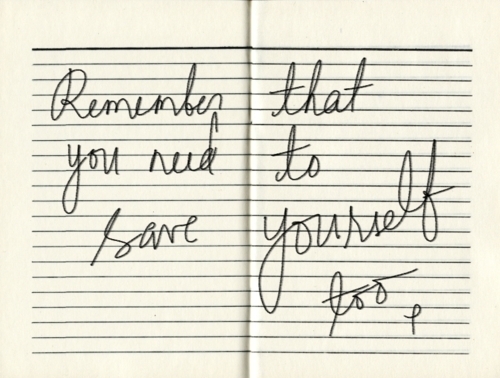 Remember that
you need to
save yourself
too